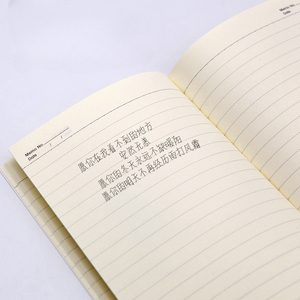 Memo No.
Date / /
愿你在我看不到的地方
安然无恙
愿你的冬天永远不缺暖阳
愿你的明天不再经历雨打风霜
Memo No.
Date